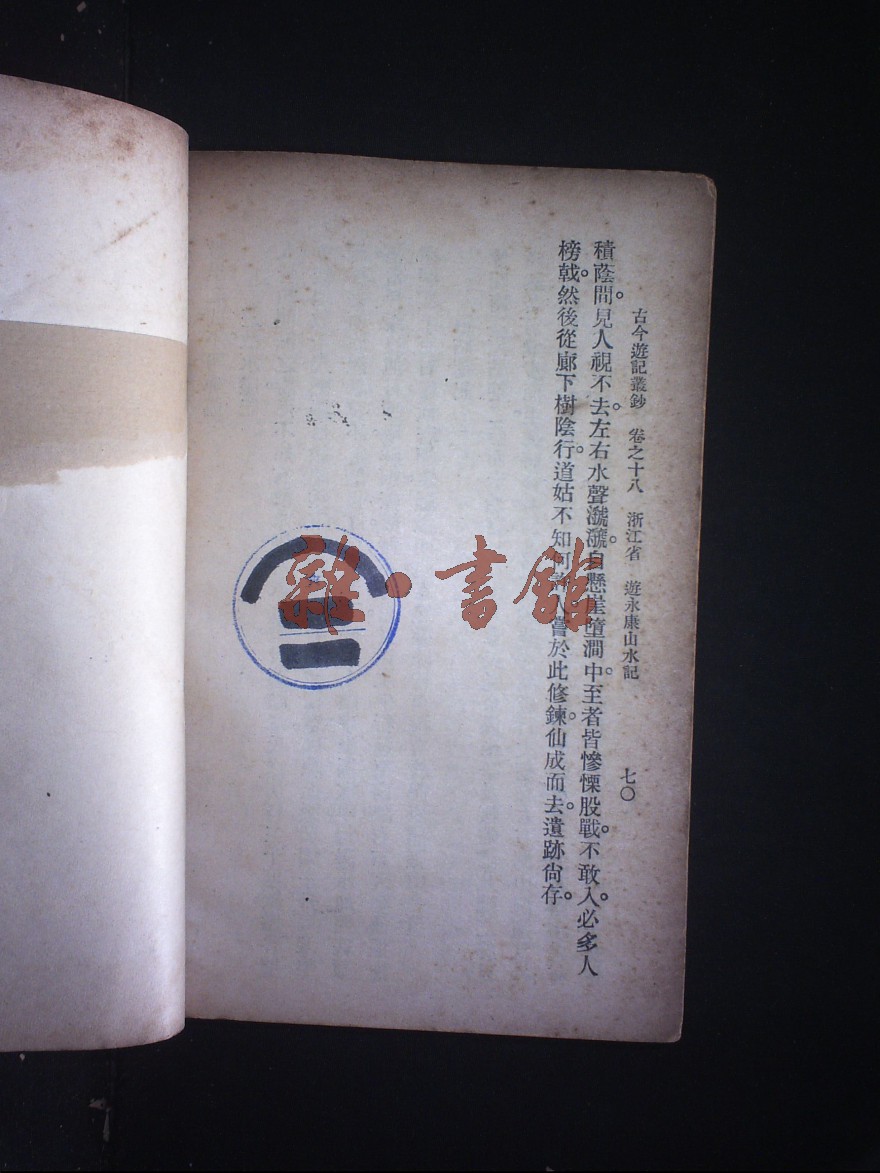 古今遊記叢鈔 卷之十八 浙江省 遊永康山水記 七〇
積蔭間。見人視不去。左右水聲㶁㶁。自懸崖墮澗中。至者皆慘慄股戰。不敢入。必多人
榜戟。然後從廊下樹陰行。道姑不知何 人嘗於此修鍊。仙成而去。遺跡尙存。
雜·書館